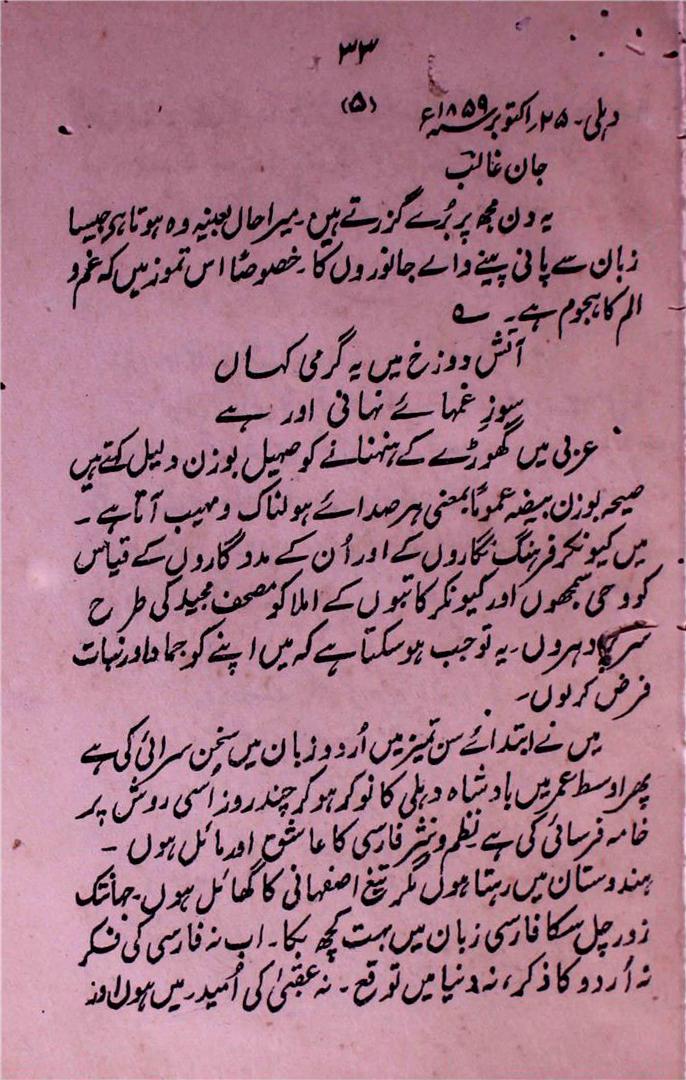 ۳۳
(۵)
دہلی۔ ۲۵؍ اکتوبر سنہ ۱۸۵۹ء
جان غالب
یہ دن مجھ پر بُرے گزرتے ہیں۔ میرا حال بعینہٖ وہ ہوتا ہے جیسا
زبان سے پانی پینے والے جانوروں کا۔ خصوصاً اس تموز میں کہ غم و
الم کا ہجوم ہے۔ ؎
آتش دوزخ میں یہ گرمی کہاں
سوزِ غمہائے نہانی اور ہے
عربی میں گھوڑے کے ہنہنانے کو صہیل بوزن دلیل کہتے ہیں
صیحہ بوزن بیضہ عموماً بمعنی ہر صدائے ہولناک و مہیب آتا ہے۔
میں کیونکر فرہنگ نگاروں کے اور اُن کے مددگاروں کے قیاس
کو وحی سمجھوں اور کیونکر کاتبوں کے املا کو مصحف مجید کی طرح
سر پر دہروں۔ یہ تو جب ہو سکتا ہے کہ میں اپنے کو جماد اور نبات
فرض کر لوں۔
میں نے ابتدائے سن تمیز میں اُردو زبان میں سخن سرائی کی ہے
پھر اوسط عمر میں بادشاہ دہلی کا نوکر ہو کر چند روز اُسی روش پر
خامہ فرسائی کی ہے نظم و نثر فارسی کا عاشق اور مائل ہوں ۔
ہندوستان میں رہتا ہوں مگر تیغ اصفہانی کا گھائل ہوں۔ جہانتک
زور چل سکا فارسی زبان میں بہت کچھ بکا۔ اب نہ فارسی کی فکر
نہ اُردو کا ذکر، نہ دنیا میں توقع ۔ نہ عقبیٰ کی اُمید۔ میں ہوں اور